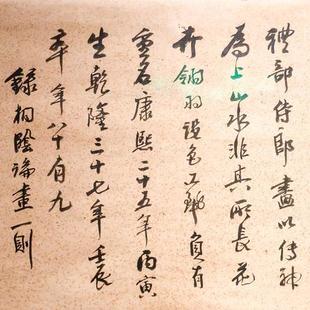 禮部侍郎畫以傳神
為上山水非其所長花
卉翎羽設色工緻負有
重名康熙二十五年丙寅
生乾隆三十七年壬辰
卒年八十有九
錄桐陰論畫一則